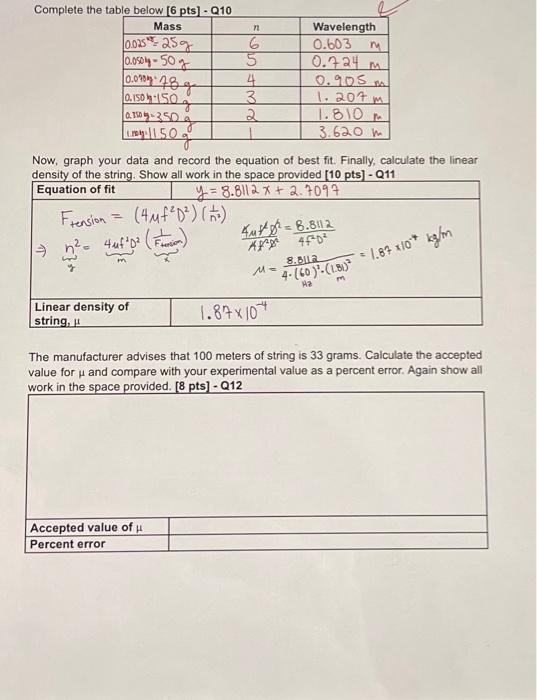 Complete the table below [6 pts] - Q10
Mass n Wavelength
0.025 kg = 25 g 6 0.603 m
0.050 kg = 50 g 5 0.724 m
78 g 4 0.905 m
0.150 kg = 150 g 3 1.207 m
350 g 2 1.810 m
1150 g 1 3.620 m
Now, graph your data and record the equation of best fit. Finally, calculate the linear
density of the string. Show all work in the space provided [10 pts] - Q11
Equation of fit y = 8.8112 x + 2.7097
F tension = (4μf²D²)(1/n²)
⇒ n² = 4μf²D² (1/F tension)
y m x
4μf²D²/4f²D² = 8.8112/4f²D²
μ = 8.8112/4·(60)²·(1.81)² = 1.87 x10⁻⁴ kg/m
Hz m
Linear density of 1.87x10⁻⁴
string, μ
The manufacturer advises that 100 meters of string is 33 grams. Calculate the accepted
value for μ and compare with your experimental value as a percent error. Again show all
work in the space provided. [8 pts] - Q12
Accepted value of μ
Percent error